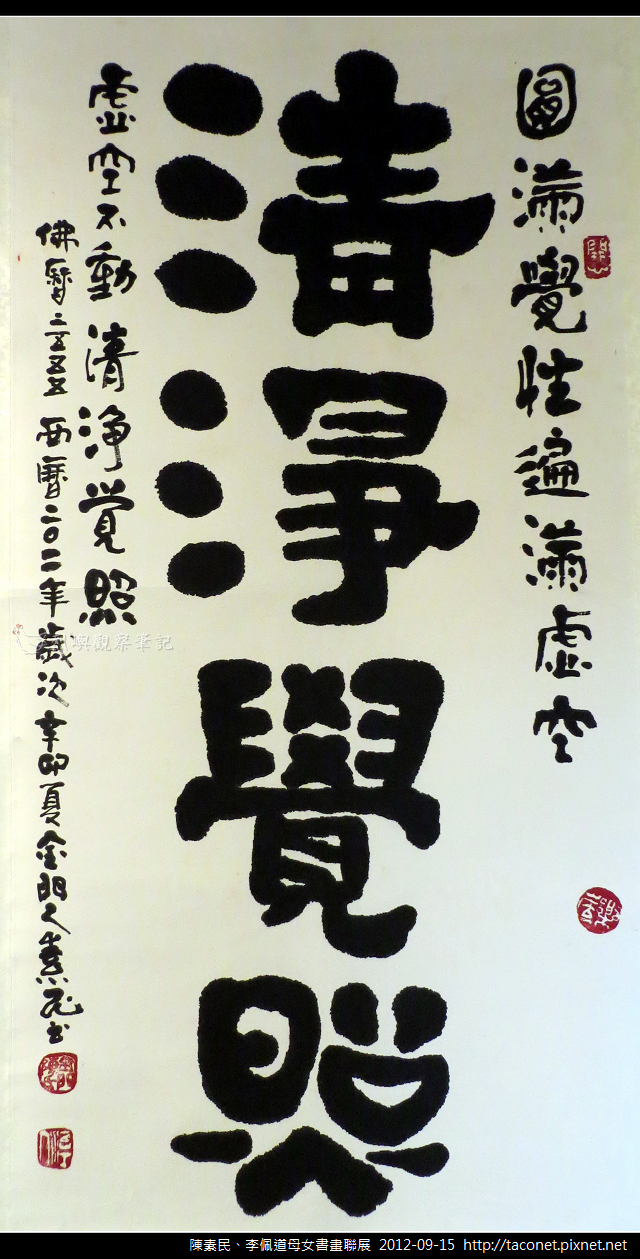 圓滿覺性遍滿虛空
清淨覺照
虛空不動清淨覺照
佛曆二五五五西曆二〇一一年歲次辛卯夏金門人素民書
嶼觀察筆記
陳素民、李佩道母女書畫聯展 2012-09-15 http://taconet.pixnet.net